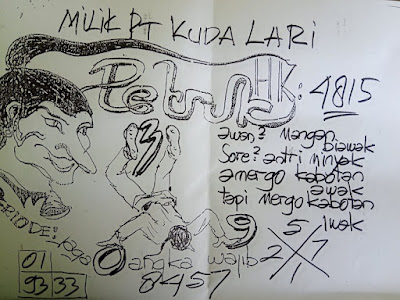 MILIK PT KUDA LARI
Petruk HK: 4815
3
awan? Mangan biawak
Sore? antri minyak
amergo kabotan awak
tapi mergo kabotan iwak
PERIODE:
01
93 33
0 angka wajib 9
8457
5
2 7